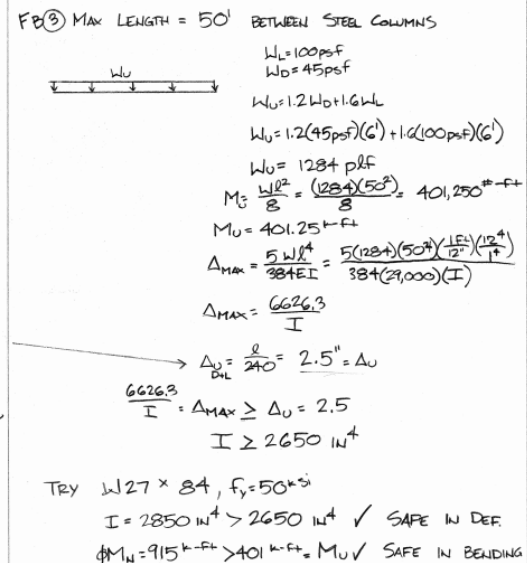 FB③ MAX LENGTH = 50' BETWEEN STEEL COLUMNS
WL=100psf
WD=45psf
Wu
Wu=1.2WD+1.6WL
Wu=1.2(45psf)(6')+1.6(100psf)(6')
Wu= 1284 plf
Mu= Wl²/8 = (1284)(50²)/8 = 401,250 #-ft
Mu= 401.25 k-ft
ΔMAX = 5Wl⁴/384EI = 5(1284)(50⁴)(1ft/12")(12⁴/1⁴)/384(29,000)(I)
ΔMAX= 6626.3/I
Δu D+L = l/240 = 2.5" = Δu
6626.3/I = ΔMAX ≥ Δu = 2.5
I ≥ 2650 IN⁴
TRY W27 × 84, fy=50ksi
I= 2850 IN⁴ > 2650 IN⁴ ✓ SAFE IN DEF.
ΦMN=915 k-ft >401 k-ft = Mu ✓ SAFE IN BENDING